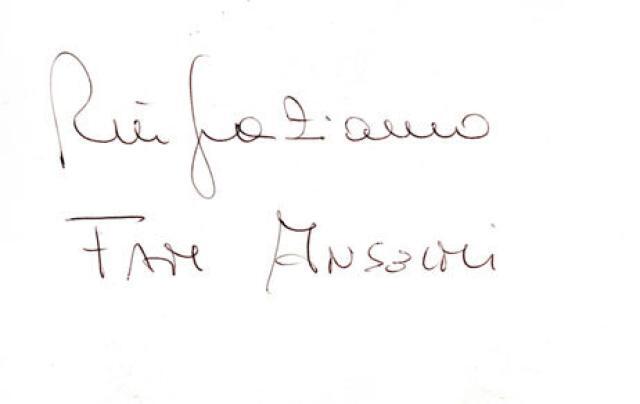 Ringraziamo
FAM ANSELMi